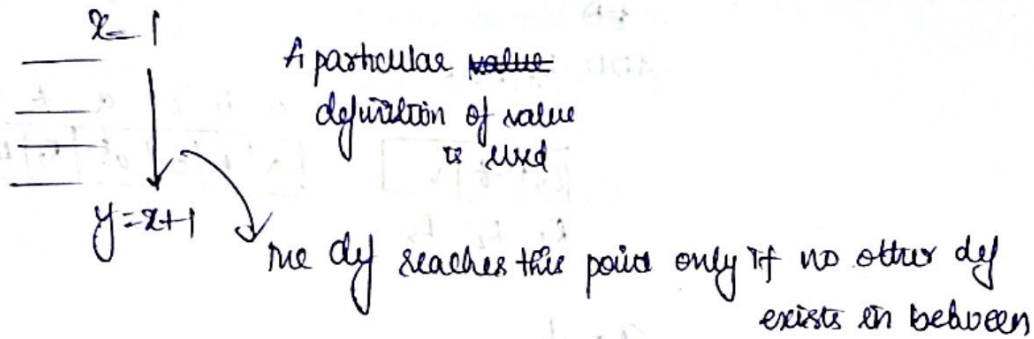 x=1
A particular value
definition of value
is used
y=x+1
The def reaches this point only if no other def
exists in between